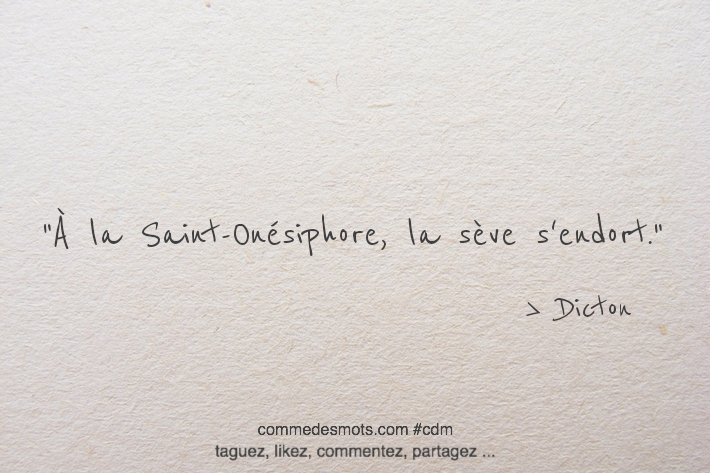 "À la Saint-Onésiphore, la sève s'endort."
> Dicton
commedesmots.com #cdm
taguez, likez, commentez, partagez ...